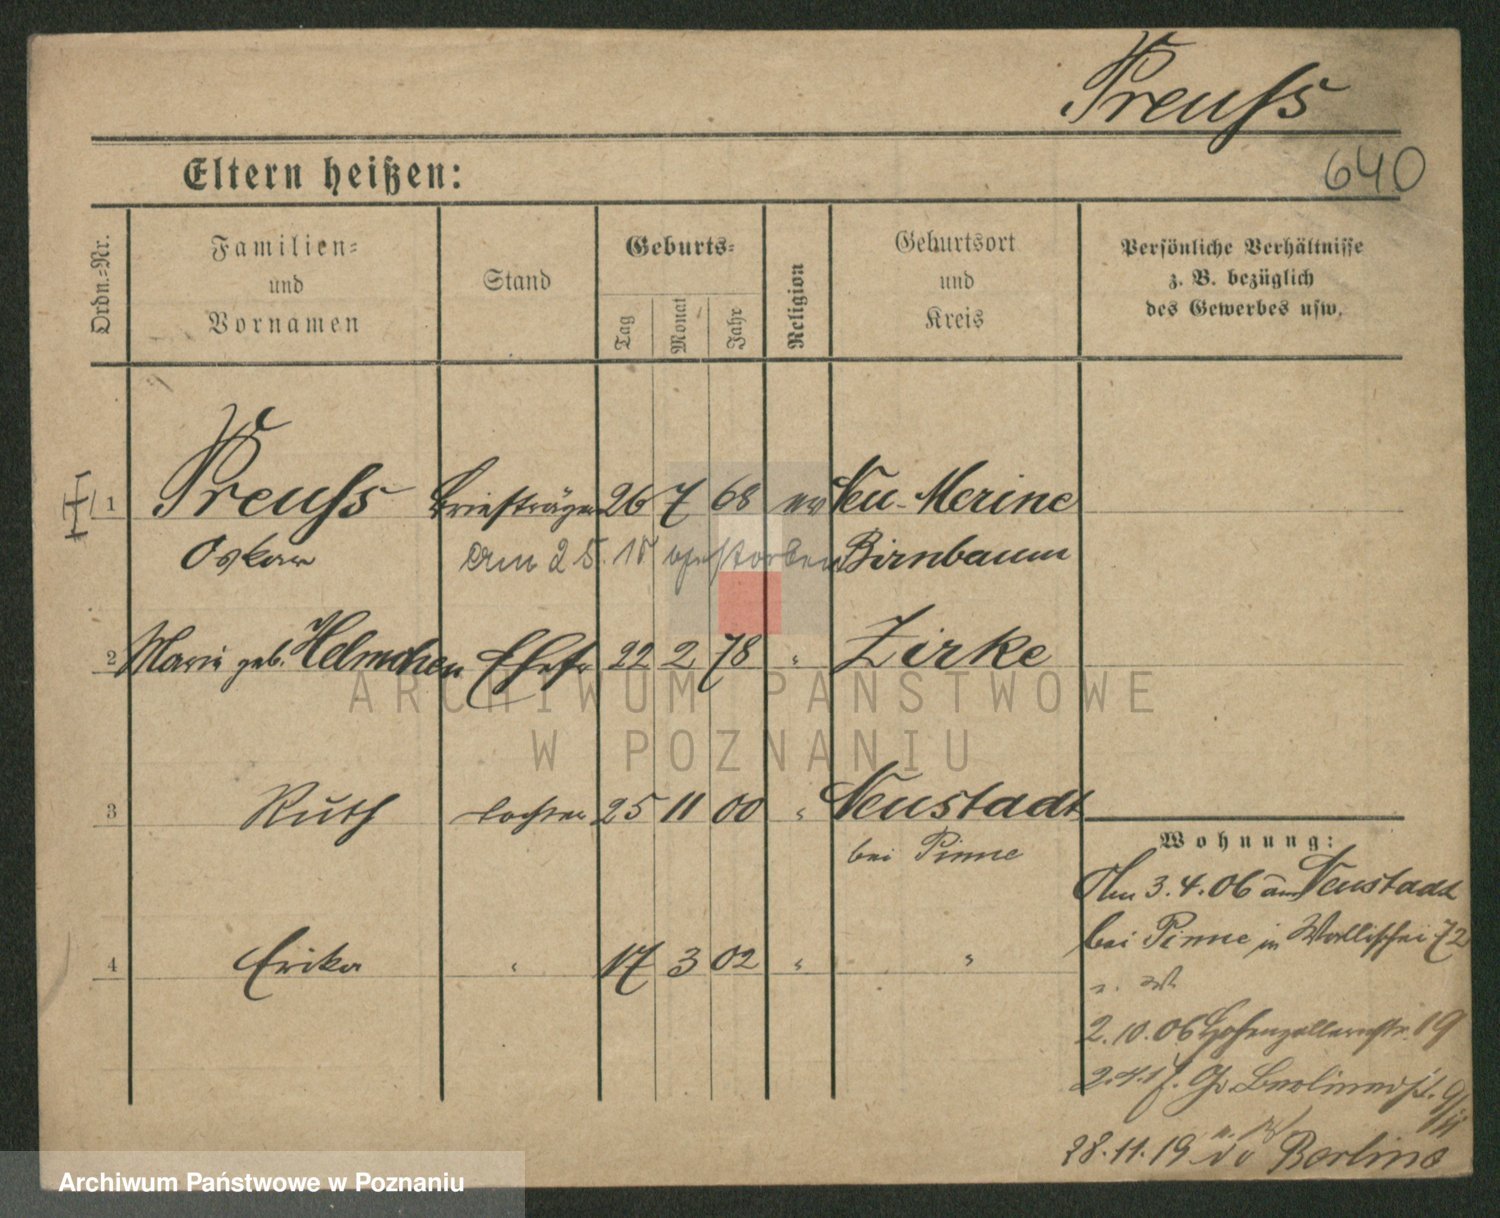 Preuſs
640
Eltern heißen:
Ordn.-Nr.
Familien-
und
Vornamen
Stand
Geburts-
Tag
Monat
Jahr
Religion
Geburtsort
und
Kreis
Persönliche Verhältnisse
z. B. bezüglich
des Gewerbes usw.
1 Preuſs Briefträger 26 7 68 ev Neu-Merine
Oskar am 25. 15 gestorben Birnbaum
2 Marie geb. Helmchen Ehefr 22 2 78 " Zirke
3 Ruth Tochter 25 11 00 " Neustadt
bei Pinne
4 Erika " 17 3 02 " "
Wohnung:
3.4.06 Neustadt
bei Pinne in Wallischei 72
2.10.06 Hohenzollernstr. 19
Gr. Berlinerst.
28.11.19 Berlin
ARCHIWUM PAŃSTWOWE
W POZNANIU
Archiwum Państwowe w Poznaniu